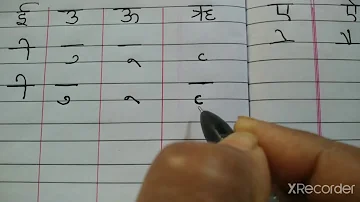 ई उ ऊ ऋ ए ऐ
ी ु ू ृ े ै
ी ु ू ृ
XRecorder